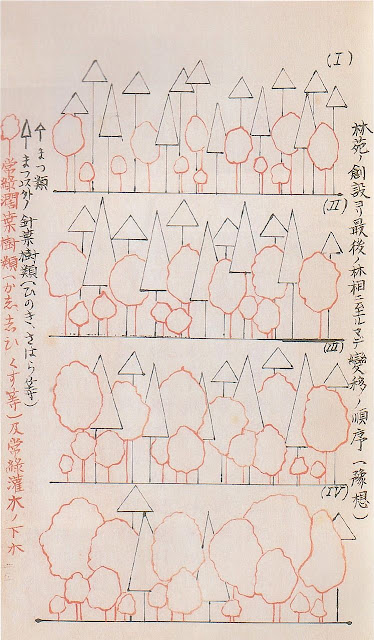 林苑ノ創設ヨリ最後ノ林相ニ至ルマデ變移ノ順序(豫想)
(I)
(II)
(III)
(IV)
まつ類
まつ以外ノ針葉樹類(ひのき、さはら等)
常綠濶葉樹類(かし、しひ、くす等)及常綠灌木ノ下木